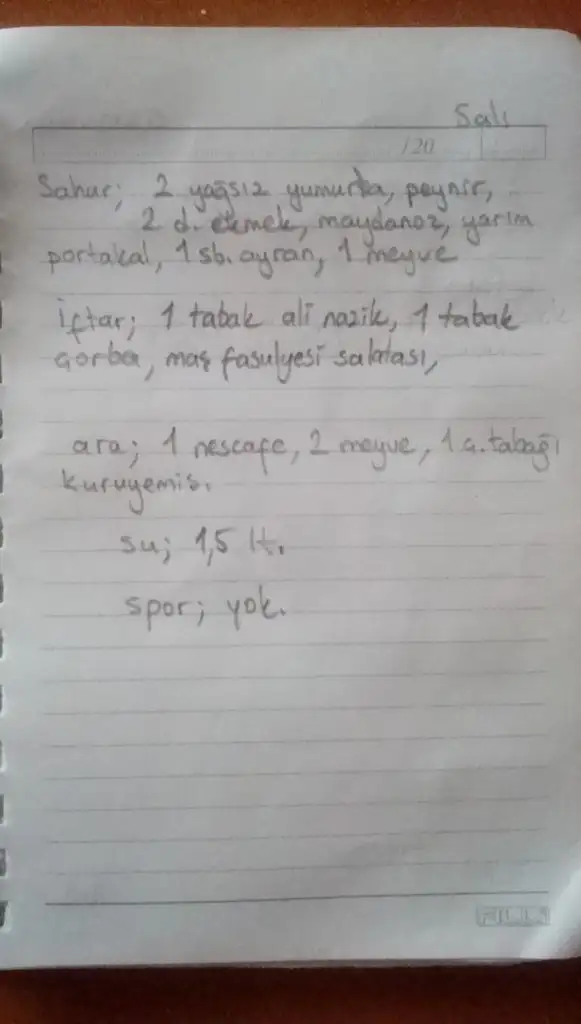 Salı
/20
Sahur; 2 yağsız yumurta, peynir,
2 d. ekmek, maydanoz, yarım
portakal, 1 sb. ayran, 1 meyve
iftar; 1 tabak ali nazik, 1 tabak
çorba, maş fasulyesi salatası,
ara; 1 nescafe, 2 meyve, 1 ç. tabağı
kuruyemis.
su; 1,5 lt.
spor; yok.